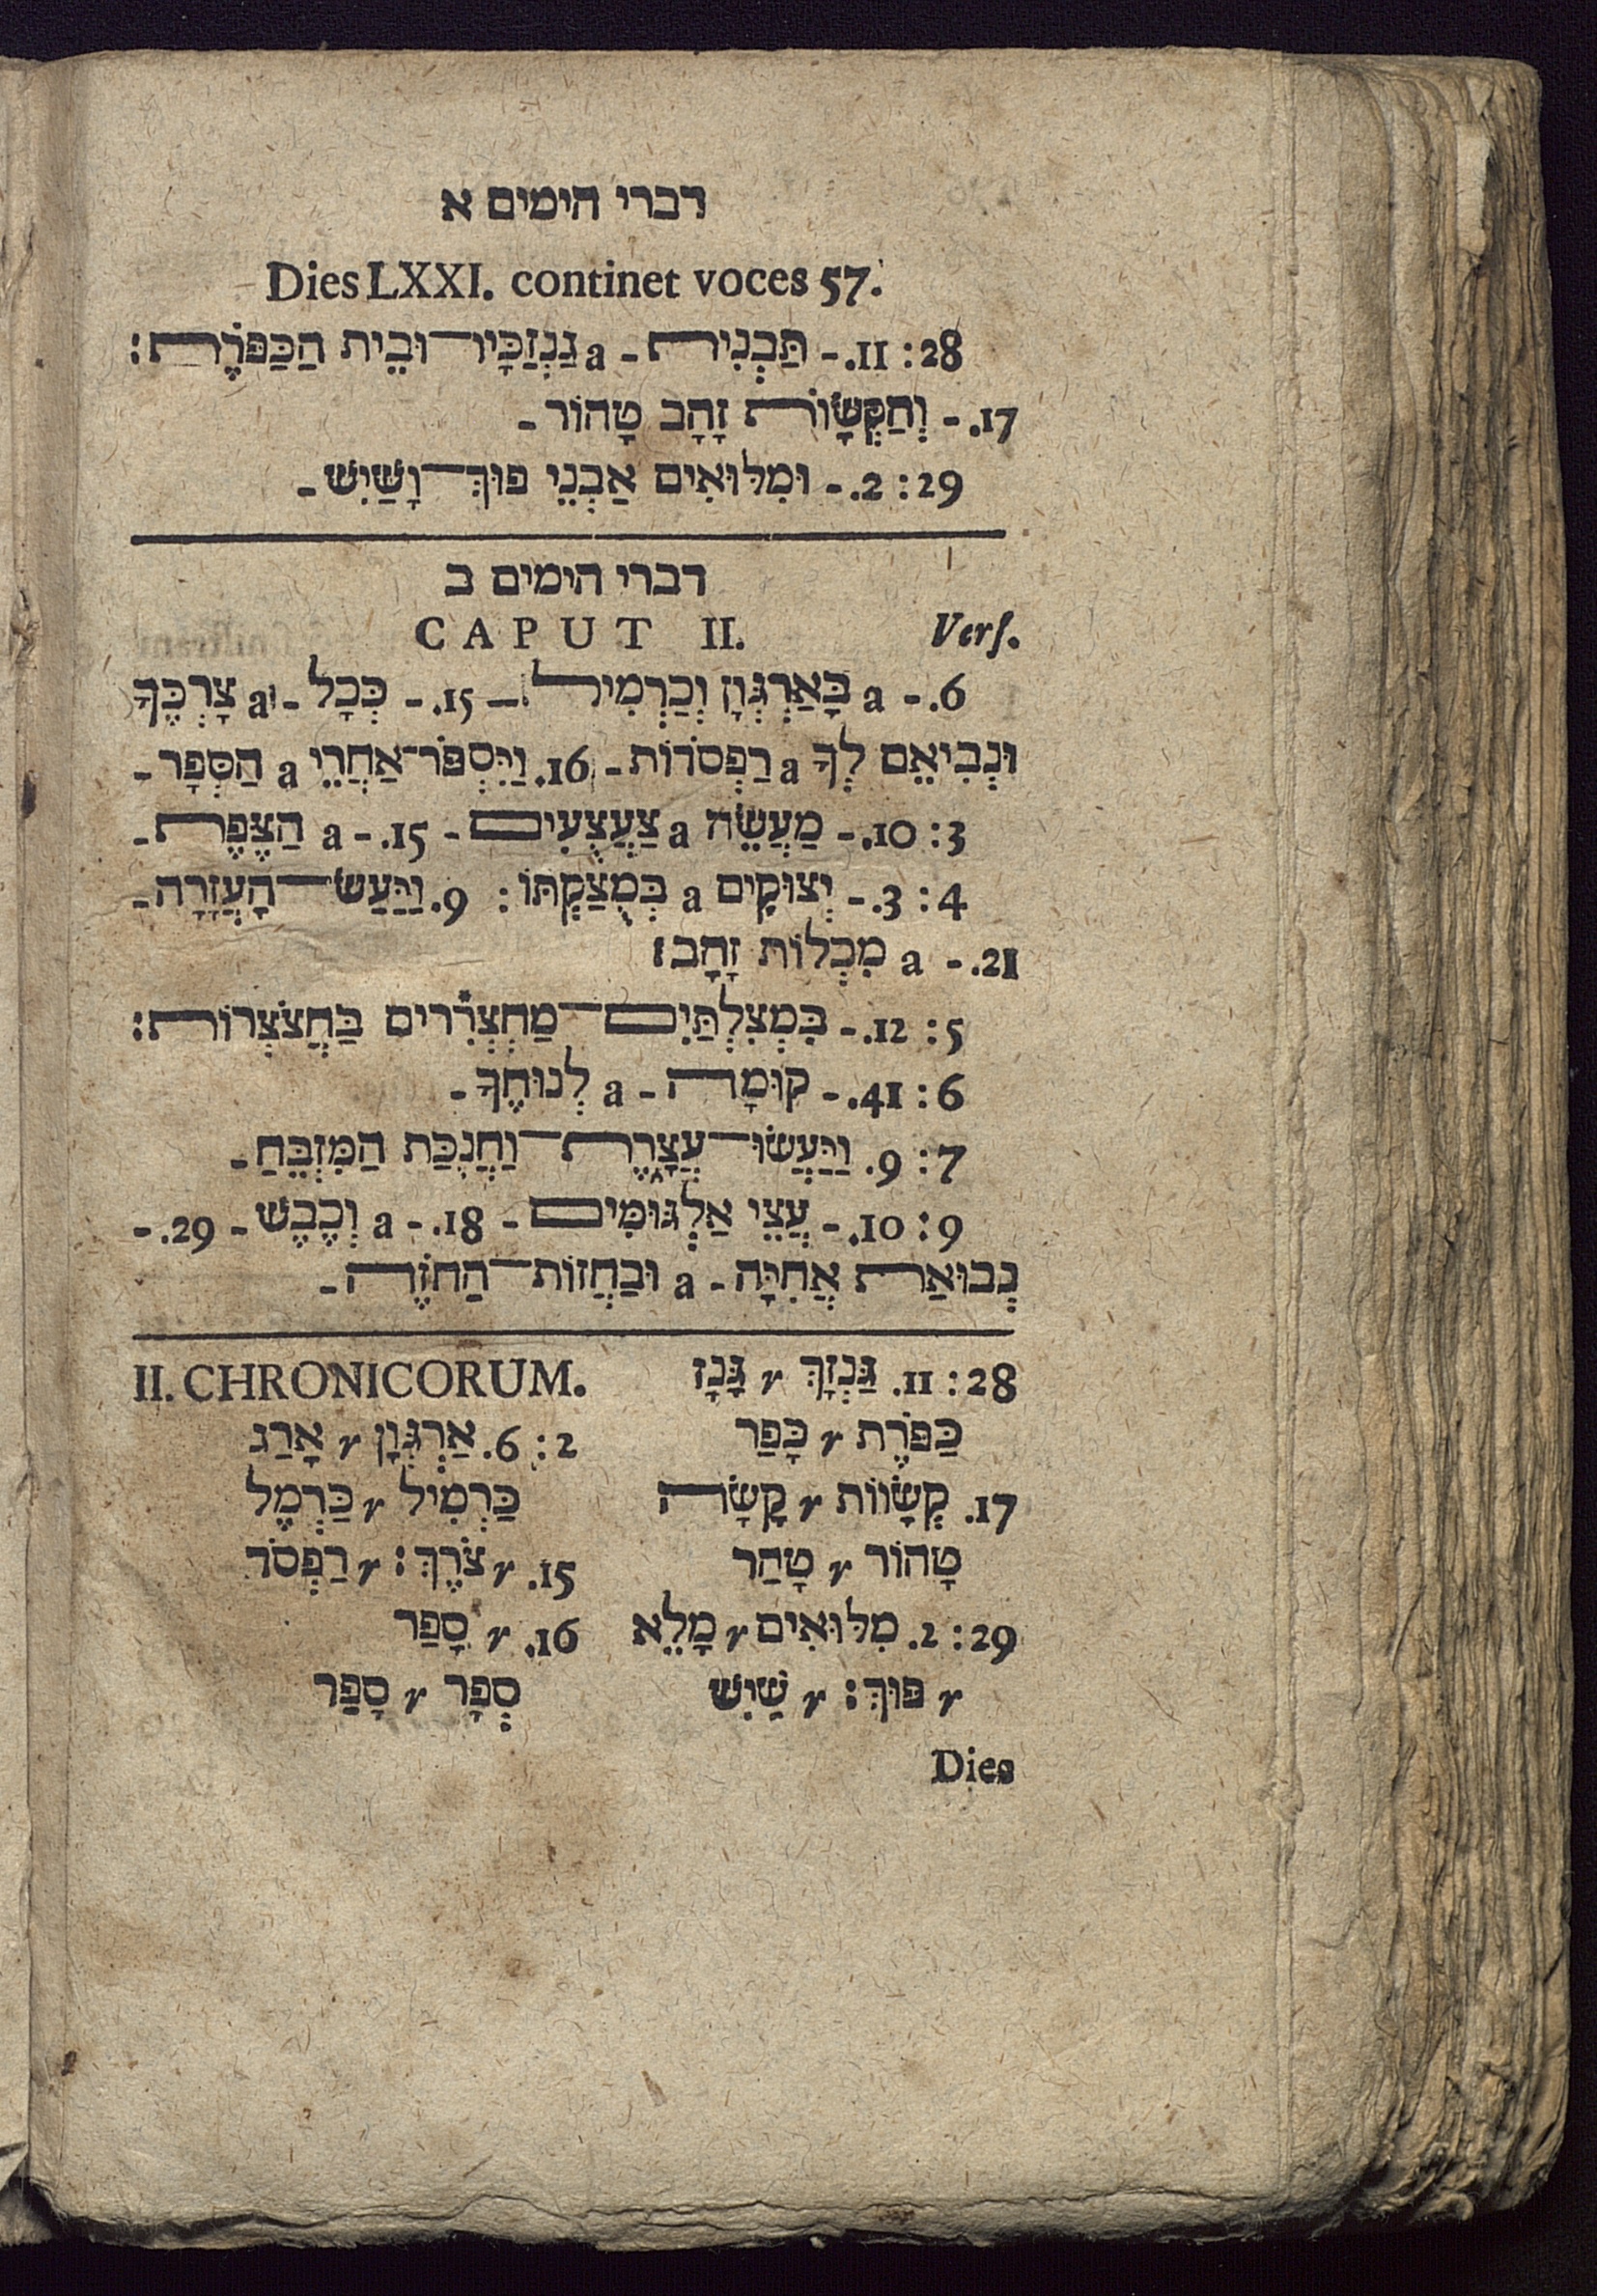 דברי הימים א
Dies LXXI. continet voces 57.
28 : 11. - תַּבְנִית - a גַנְזַכָּיו־וּבֵית הַכַּפֹּרֶת :
17. - וְהַקְּשָׂוֹת זָהָב טָהוֹר -
29 : 2. - וּמִלּוּאִים אַבְנֵי פוּךְ־וָשַׁיִשׁ -
דברי הימים ב
Vers. CAPUT II.
6. - a בָּאַרְגְּוָן וְכַרְמִיל - 15. - כְּכָל - a צָרְכֶּךָ
וּנְבִיאֵם לְךָ a רַפְסֹדוֹת - 16. וַיִּסְפֹּר־אַחֲרֵי a הַסְּפָר -
3 : 10. - מַעֲשֵׂה a צַעֲצֻעִים - 15. - a הַצֶּפֶת -
4 : 3. - יְצוּקִים a בְּמֻצַקְתּוֹ : 9. וַיַּעַשׂ־הָעֲזָרָה -
21. - a מִכְלוֹת זָהָב :
5 : 12. - בִּמְצִלְתַּיִם־מַחְצְרִרים בַּחֲצֹצְרוֹת :
6 : 41. - קוּמָה - a לְנוּחֶךָ -
7 : 9. וַיַּעֲשׂוּ־עֲצָרֶת־וַחֲנֻכַּת הַמִּזְבֵּחַ -
9 : 10. - עֲצֵי אַלְגּוּמִּים - 18. - a וְכֶבֶשׁ - 29. -
נְבוּאַת אֲחִיָּה - a וּבַחֲזוֹת־הַחֹזֶה -
28 : 11. גַּנְזָךְ r גָּנָז
כַּפֹּרֶת r כָּפַר
17. קְשָׂווֹת r קָשָׂה
טָהוֹר r טָהַר
29 : 2. מִלּוּאִים r מָלֵא
r פּוּךְ : r שַׁיִשׁ
II. CHRONICORUM.
2 : 6. אַרְגְּוָן r אָרַג
כַּרְמִיל r כַּרְמֶל
15. r צֹרֶךְ : r רַפְסֹד
16. r סָפַר
סְפָר r סָפַר
Dies